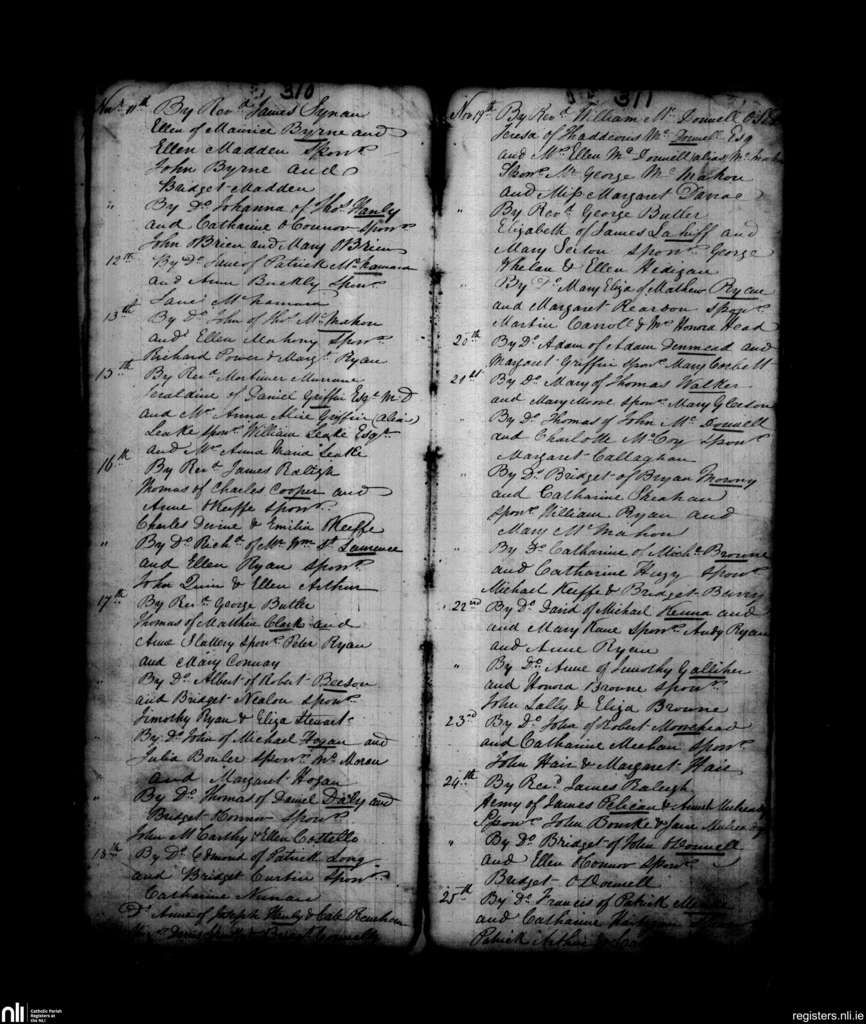 310
Nov. 11th By Revd. James Synan
Ellen of Maurice Byrne and
Ellen Madden Sponrs.
John Byrne and
Bridget Madden
" By Do. Johanna of Thos. Hanly
and Catharine O Connor Sponrs.
John O'Brien and Mary O'Brien
12th By Do. Jane of Patrick McNamara
and Ann Buckly Sponr.
Jane McNamara
13th By Do. John of Thos. McMahon
and Ellen Mahony Sponrs.
Richard Power & Margt. Ryan
15th By Revd. Mortimer
Geraldine of Daniel Griffin Esqr. M.D
and Mrs. Anna Griffin (alias)
Leake Sponrs. William Leake Esqr.
and Mrs. Anna Maria Leake
16th By Revd. James Raleigh
Thomas of Charles Cooper and
Anne O Keiffe Sponrs.
Charles Devine & Emilia O Keiffe
" By Do. Richd. of Mr. Wm. St. Lawrence
and Ellen Ryan Sponrs.
John Quin & Ellen Arthur
17th By Revd. George Butler
Thomas of Matthew Clark and
Anne Slattery Sponrs. Peter Ryan
and Mary Conway
" By Do. Albert of Robert Beeson
and Bridget Nealon Sponrs.
Timothy Ryan & Eliza Stewart
" By Do. John of Michael Hogan and
Julia Bouler Sponrs. Moran
and Margaret Hogan
" By Do. Thomas of Daniel Daly and
Bridget Connor Sponrs.
John McCarthy & Ellen Costello
18th By Do. Edmond of Patrick Long
and Bridget Curtin Sponr.
Catharine Nunan
Do. Anne of Joseph Hanly & Cate
311
Nov. 19th By Revd. William McDonnell
Teresa of Thaddeous McDonnell Esq
and Mrs. Ellen McDonnell alias McMahon
Sponrs. Mr George McMahon
and Miss Margaret
" By Revd. George Butler
Elizabeth of James and
Mary Sexton Sponrs. George
Whelan & Ellen Hedigan
" By Do. Mary Eliza of Mathew Ryan
and Margaret Reardon Sponrs.
Martin Carroll & Mrs Honora Head
20th By Do. Adam of Adam Denmead and
Margaret Griffin Sponr. Mary Corbett
21st By Do. Mary of Thomas Walker
and Mary Moore Sponr. Mary Gleeson
" By Do. Thomas of John McDonnell
and Charlotte McCoy Sponr.
Margaret Callaghan
" By Do. Bridget of Bryan
and Catharine Sheahan
Sponrs. William Ryan and
Mary McMahon
" By Do. Catharine of Michl. Browne
and Catharine Sponrs.
Michael Keiffe & Bridget Barry
22nd By Do. David of Michael Kenna and
and Mary Kane Sponrs. Andy Ryan
and Anne Ryan
" By Do. Anne of Timothy Galliher
and Honora Browne Sponrs.
John Lally & Eliza Browne
23rd By Do. John of Robert Moorehead
and Catharine Meehan Sponrs.
John Hair & Margaret Hair
24th By Revd. James Raleigh
of James Pelican &
Sponrs. John Bourke & Jane
" By Do. Bridget of John O Donnell
and Ellen O Connor Sponr.
Bridget O Donnell
25th By Do. Francis of Patrick
and Catharine
Patrick Arthur &
nli
Catholic Parish
Registers at
the NLI
registers.nli.ie